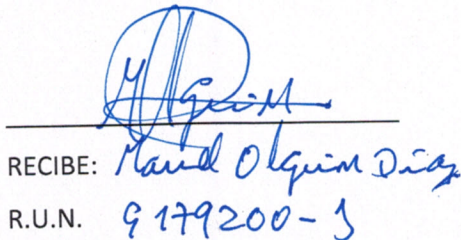 RECIBE: Manuel Olguin Diaz
R.U.N. 9179200-1